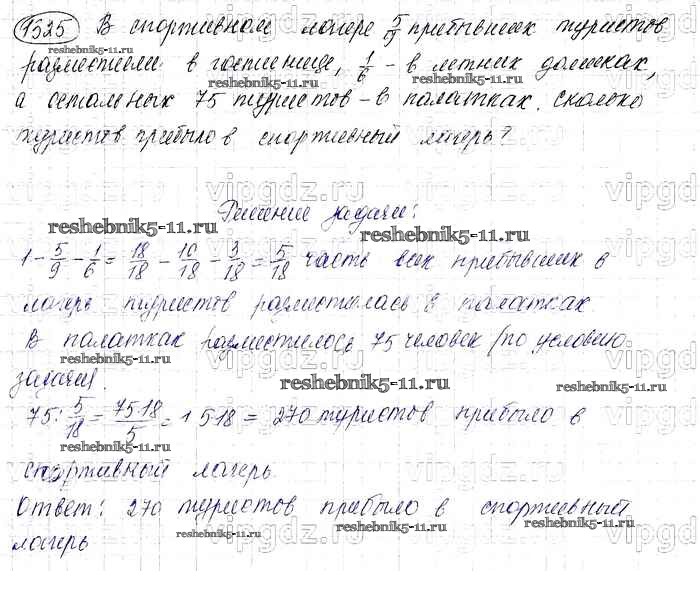 1525 В спортивном лагере 5/9 прибывших туристов
разместили в гостинице, 1/6 - в летних домиках,
а остальных 75 туристов - в палатках. Сколько
туристов прибыло в спортивный лагерь?
vipgdz.ru vipgdz.ru vipgdz.ru
Решение задачи:
reshebnik5-11.ru reshebnik5-11.ru
1 - 5/9 - 1/6 = 18/18 - 10/18 - 3/18 = 5/18 часть всех прибывших в
лагерь туристов разместилась в палатках.
В палатках разместилось 75 человек (по условию
reshebnik5-11.ru
задачи).
reshebnik5-11.ru
75 : 5/18 = 75·18/5 = 15·18 = 270 туристов прибыло в
reshebnik5-11.ru
спортивный лагерь.
Ответ: 270 туристов прибыло в спортивный
reshebnik5-11.ru reshebnik5-11.ru
лагерь